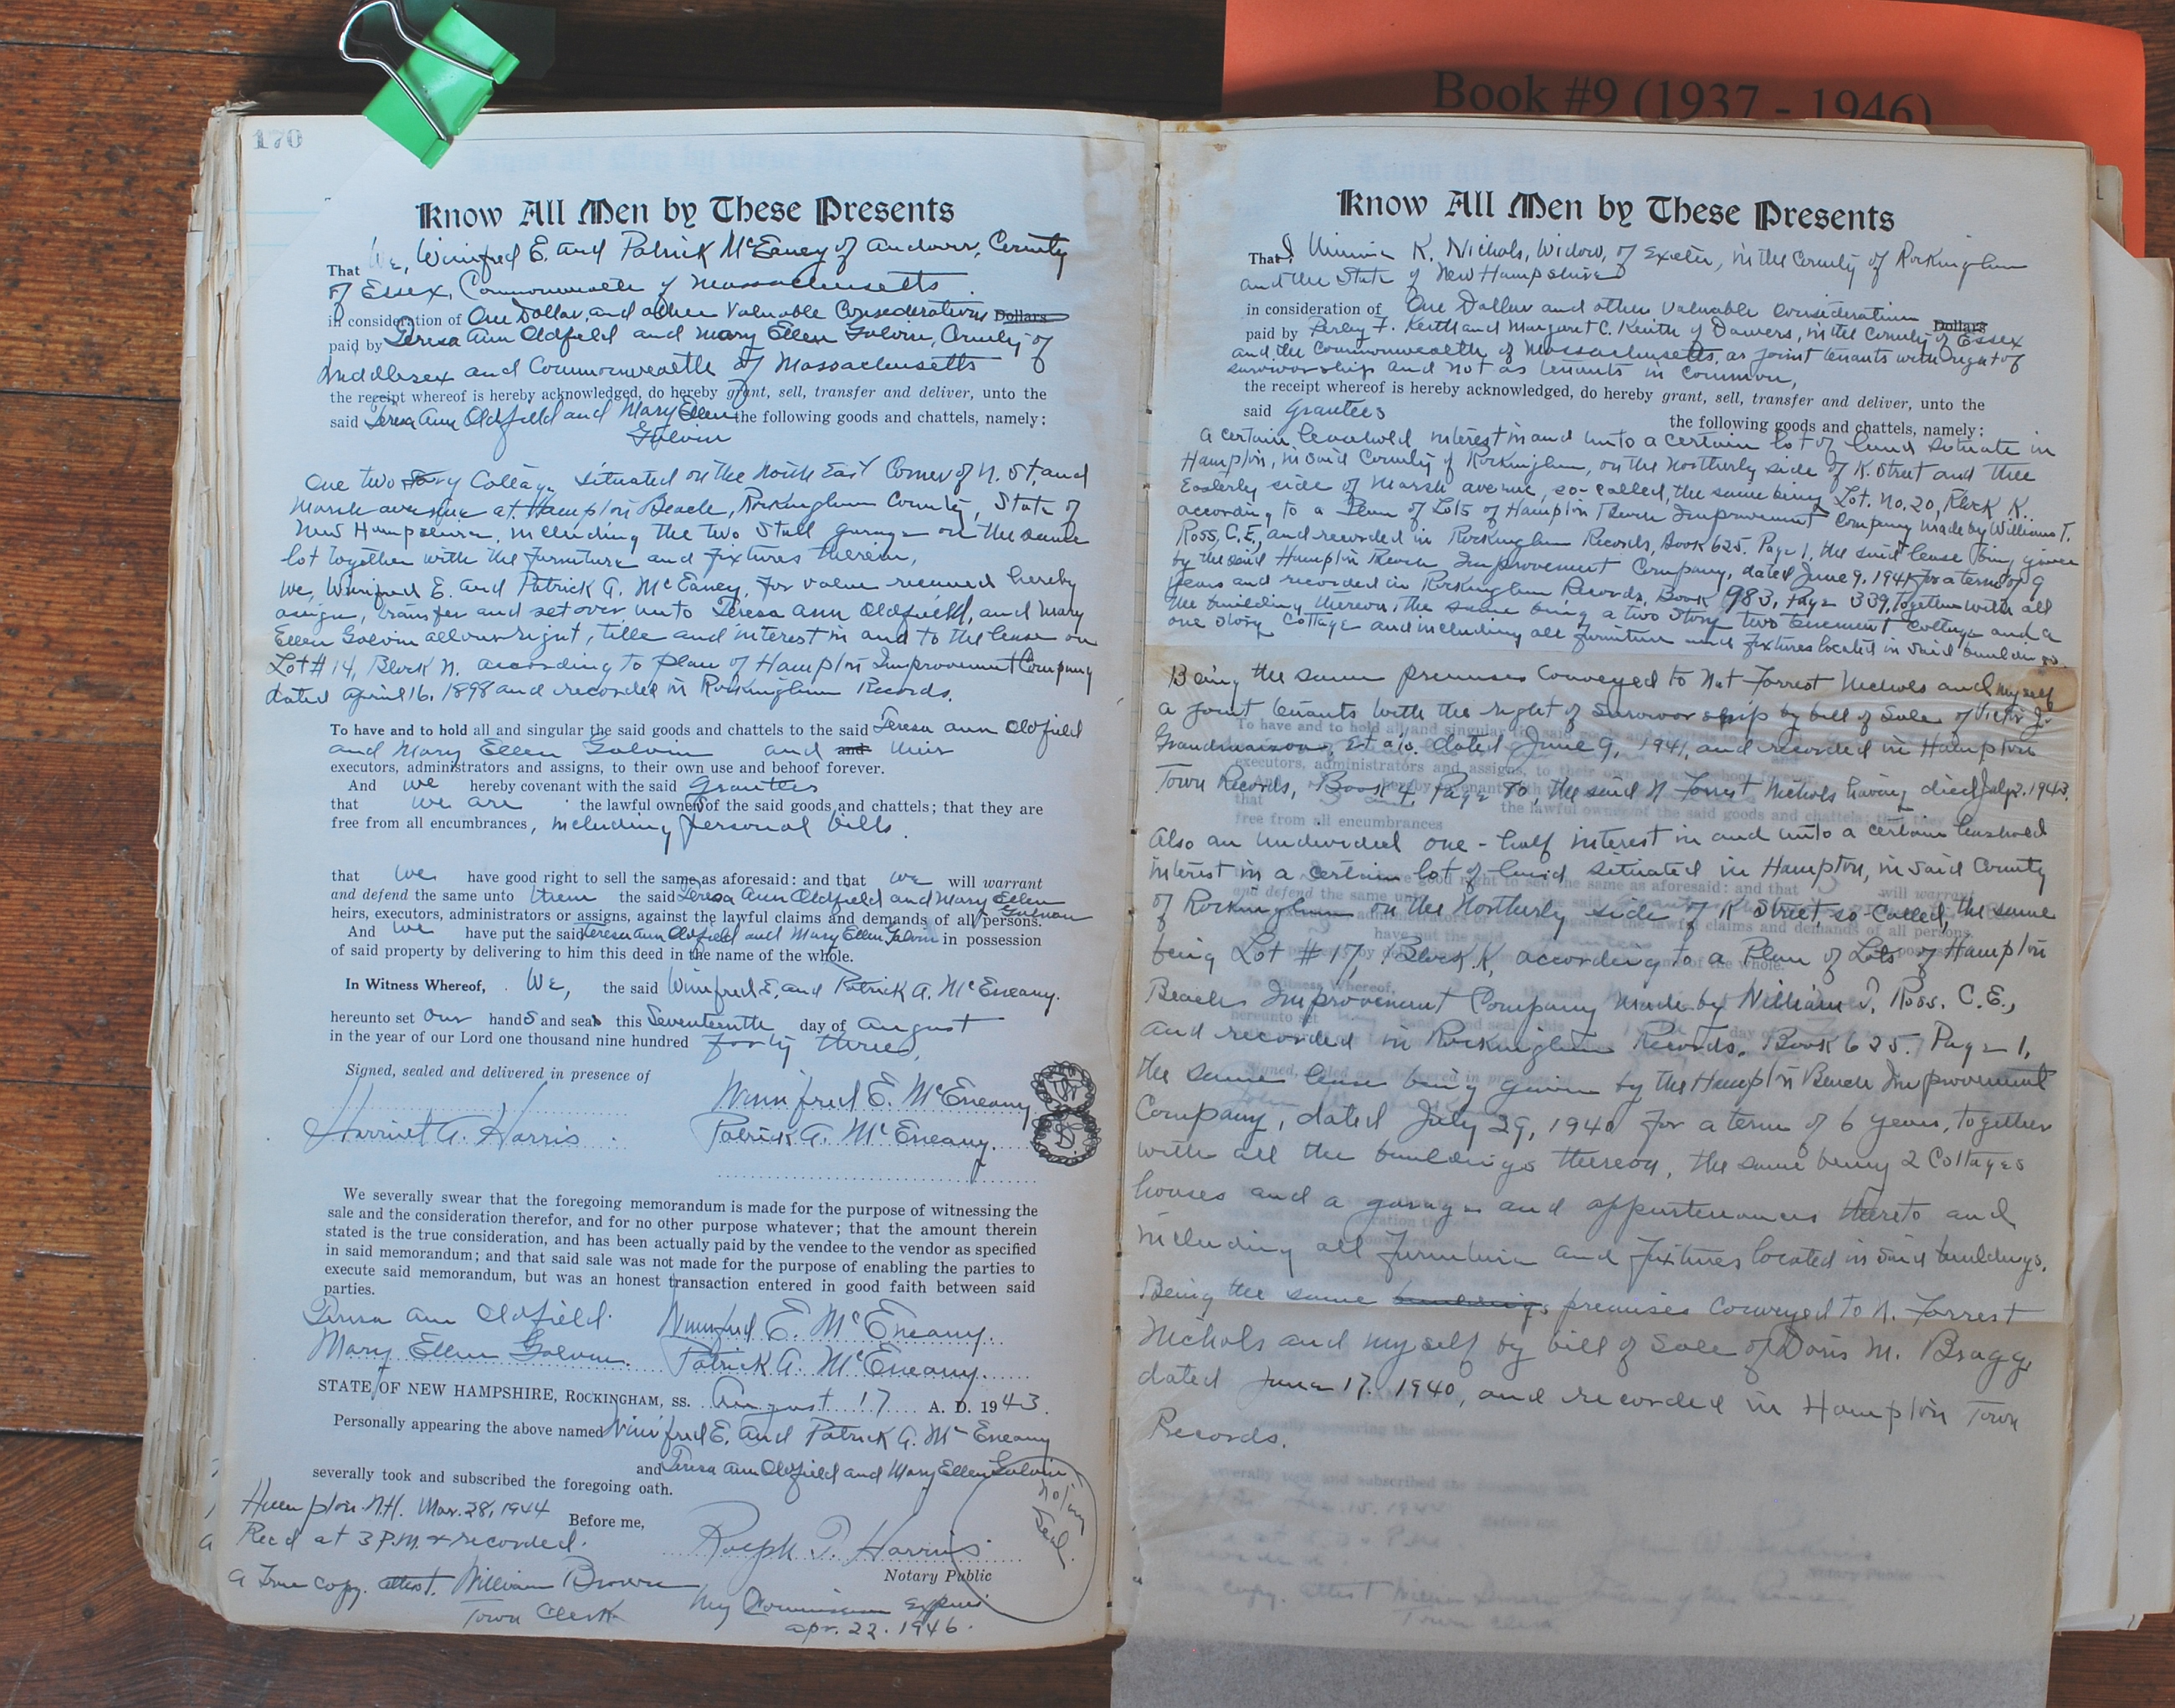 Book #9 (1937 - 1946)
170
Know All Men by These Presents
That We, Winifred E. and Patrick McEaney of Andover, County
of Essex, Commonwealth of Massachusetts
in consideration of One Dollar, and other Valuable Considerations Dollars
paid by Teresa Ann Oldfield and Mary Ellen Galvin, County of
Middlesex and Commonwealth of Massachusetts
the receipt whereof is hereby acknowledged, do hereby grant, sell, transfer and deliver, unto the
said Teresa Ann Oldfield and Mary Ellen the following goods and chattels, namely:
Galvin
One two story Cottage situated on the North East Corner of N. St, and
Marsh avenue at Hampton Beach, Rockingham County, State of
New Hampshire, including the two Stall garage on the same
lot together with the furniture and fixtures therein,
We, Winifred E. and Patrick A. McEaney, for value received hereby
assign, transfer and set over unto Teresa Ann Oldfield, and Mary
Ellen Galvin all our right, title and interest in and to the lease on
Lot #14, Block N. according to plan of Hampton Improvement Company
dated April 16, 1898 and recorded in Rockingham Records.
To have and to hold all and singular the said goods and chattels to the said Teresa Ann Oldfield
and Mary Ellen Galvin and and their
executors, administrators and assigns, to their own use and behoof forever.
And we hereby covenant with the said Grantees
that we are the lawful owners of the said goods and chattels; that they are
free from all encumbrances, including personal bills.
that we have good right to sell the same as aforesaid: and that we will warrant
and defend the same unto them the said Teresa Ann Oldfield and Mary Ellen
Galvin
heirs, executors, administrators or assigns, against the lawful claims and demands of all persons.
And we have put the said Teresa Ann Oldfield and Mary Ellen Galvin in possession
of said property by delivering to him this deed in the name of the whole.
In Witness Whereof, We, the said Winifred E. and Patrick A. McEneany.
hereunto set our hands and seals this Seventeenth day of August
in the year of our Lord one thousand nine hundred forty three,
Signed, sealed and delivered in presence of
Winnifred E. McEneany
Harriet A. Harris Patrick A. McEneany.
We severally swear that the foregoing memorandum is made for the purpose of witnessing the
sale and the consideration therefor, and for no other purpose whatever; that the amount therein
stated is the true consideration, and has been actually paid by the vendee to the vendor as specified
in said memorandum; and that said sale was not made for the purpose of enabling the parties to
execute said memorandum, but was an honest transaction entered in good faith between said
parties.
Teresa Ann Oldfield. Winnifred E. McEneany.
Mary Ellen Galvin. Patrick A. McEneany.
STATE OF NEW HAMPSHIRE, ROCKINGHAM, SS. August 17 A. D. 1943.
Personally appearing the above named Winifred E. and Patrick A. McEneany
and Teresa Ann Oldfield and Mary Ellen Galvin
severally took and subscribed the foregoing oath.
Notary
Seal.
Hampton N.H. Mar. 28, 1944 Before me,
Rec'd at 3 P.M. & recorded. Ralph T. Harris
Notary Public
A True copy. attest. William Brown My Commission Expires
Town Clerk apr. 22. 1946.
Know All Men by These Presents
That I Minnie K. Nichols, Widow, of Exeter, in the County of Rockingham
and the State of New Hampshire
in consideration of One Dollar and other valuable consideration Dollars
paid by Perley F. Keith and Margaret C. Keith of Danvers, in the County of Essex
and the Commonwealth of Massachusetts, as joint tenants with right of
survivorship and not as tenants in common,
the receipt whereof is hereby acknowledged, do hereby grant, sell, transfer and deliver, unto the
said Grantees the following goods and chattels, namely:
A certain leasehold interest in and unto a certain lot of land situate in
Hampton, in said County of Rockingham, on the Northerly side of K. Street and the
Easterly side of Marsh avenue, so-called, the same being Lot. No. 20, Block K.
according to a Plan of Lots of Hampton Beach Improvement Company made by William T.
Ross, C.E, and recorded in Rockingham Records, Book 625. Page 1, the said lease being given
by the said Hampton Beach Improvement Company, dated June 9, 1941 for a term of 9
years and recorded in Rockingham Records, Book 983, Page 339, together with all
the buildings thereon, the same being a two Story two tenement Cottage and a
one story Cottage and including all furniture and fixtures located in said buildings.
Being the same premises conveyed to Nat Forrest Nichols and myself
a joint tenants with the right of survivorship by bill of Sale of Victor J.
Grandmaison, et als. dated June 9, 1941, and recorded in Hampton
Town Records, Book 9, Page 90, the said N Forrest Nichols having died July 2, 1943.
Also an undivided one-half interest in and unto a certain leasehold
interest in a certain lot of land situated in Hampton, in said County
of Rockingham on the Northerly side of K Street, so-called, the same
being Lot #17, Block K, according to a Plan of Lots of Hampton
Beach Improvement Company made by William T. Ross. C.E.,
and recorded in Rockingham Records. Book 625. Page 1,
the same lease being given by the Hampton Beach Improvement
Company, dated July 29, 1940 for a term of 6 years, together
with all the buildings thereon, the same being 2 Cottages
houses and a garage and appurtenances thereto and
including all furniture and fixtures located in said buildings.
Being the same buildings premises conveyed to N. Forrest
Nichols and myself by bill of Sale of Doris M. Bragg
dated June 17. 1940, and recorded in Hampton Town
Records.